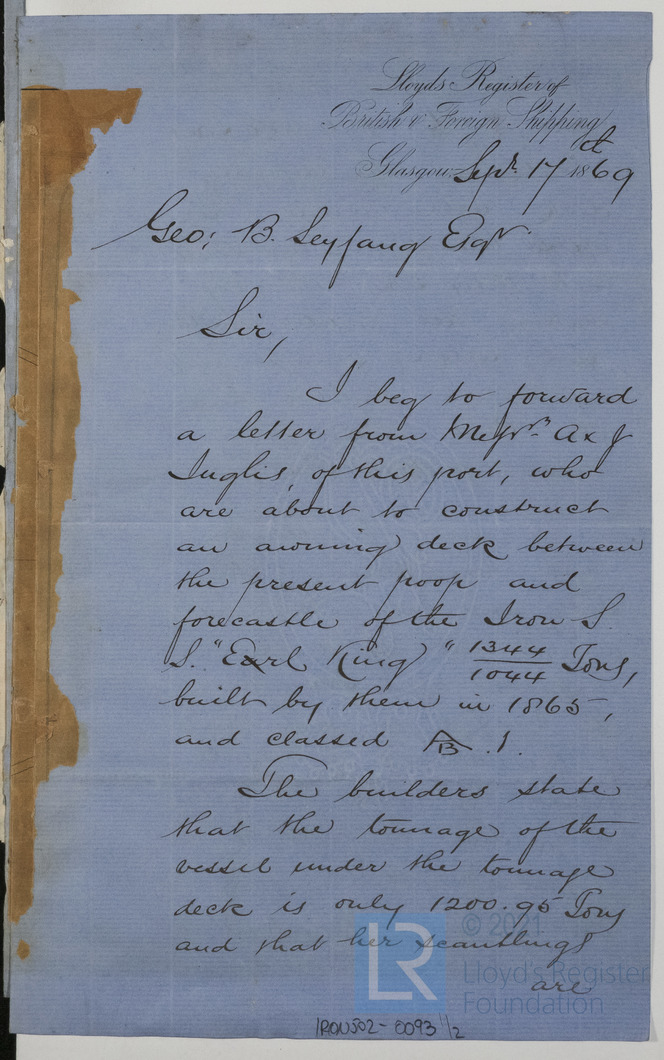 Lloyds Register of
British & Foreign Shipping
Glasgow Sept. 17th 1869
Geo: B. Seyfang Esqr.
Sir,
I beg to forward
a letter from Messrs. A & J
Inglis, of this port, who
are about to construct
an awning deck between
the present poop and
forecastle of the Iron S.
S. "Earl King" 1344/1044 Tons,
built by them in 1865,
and classed A B .1.
The builders state
that the tonnage of the
vessel under the tonnage
deck is only 1200.95 Tons
and that her scantlings
are
© 2021
LR
Lloyd's Register
Foundation
IRON502-0093 1/2